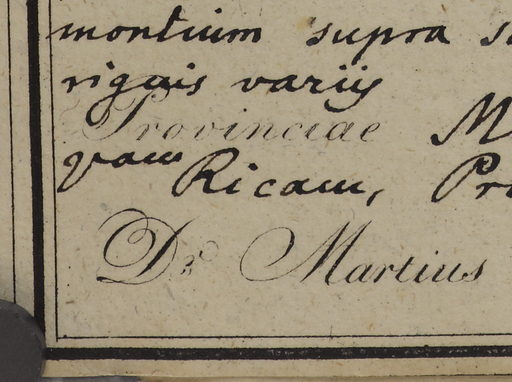 montium supra
riguis variis
Provinciae M
quam
Ricam, Pr
Dr. Martius